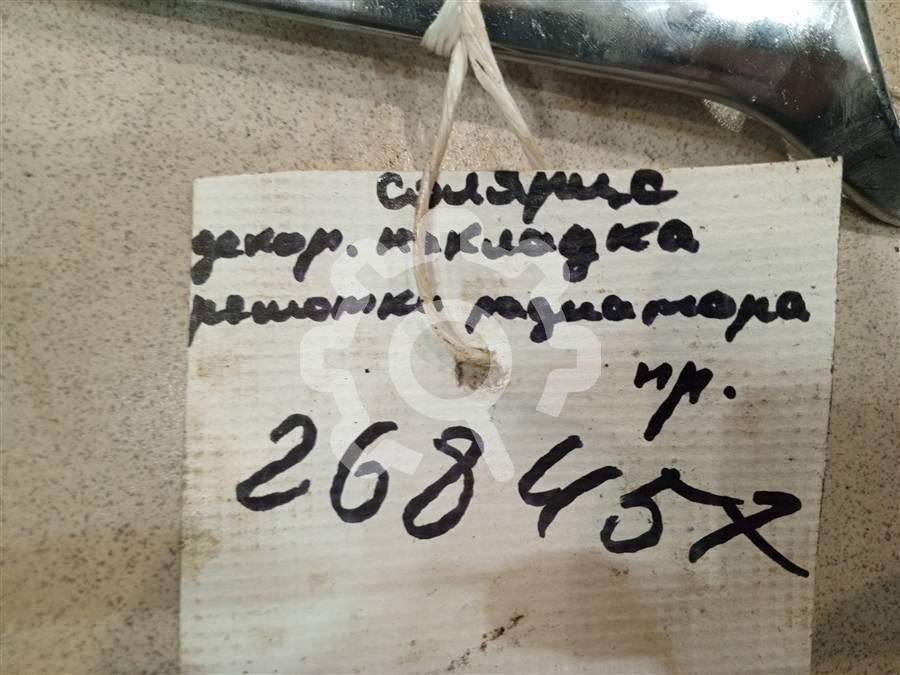 солярис
декор. накладка
решотки радиатора
пр.
26845х